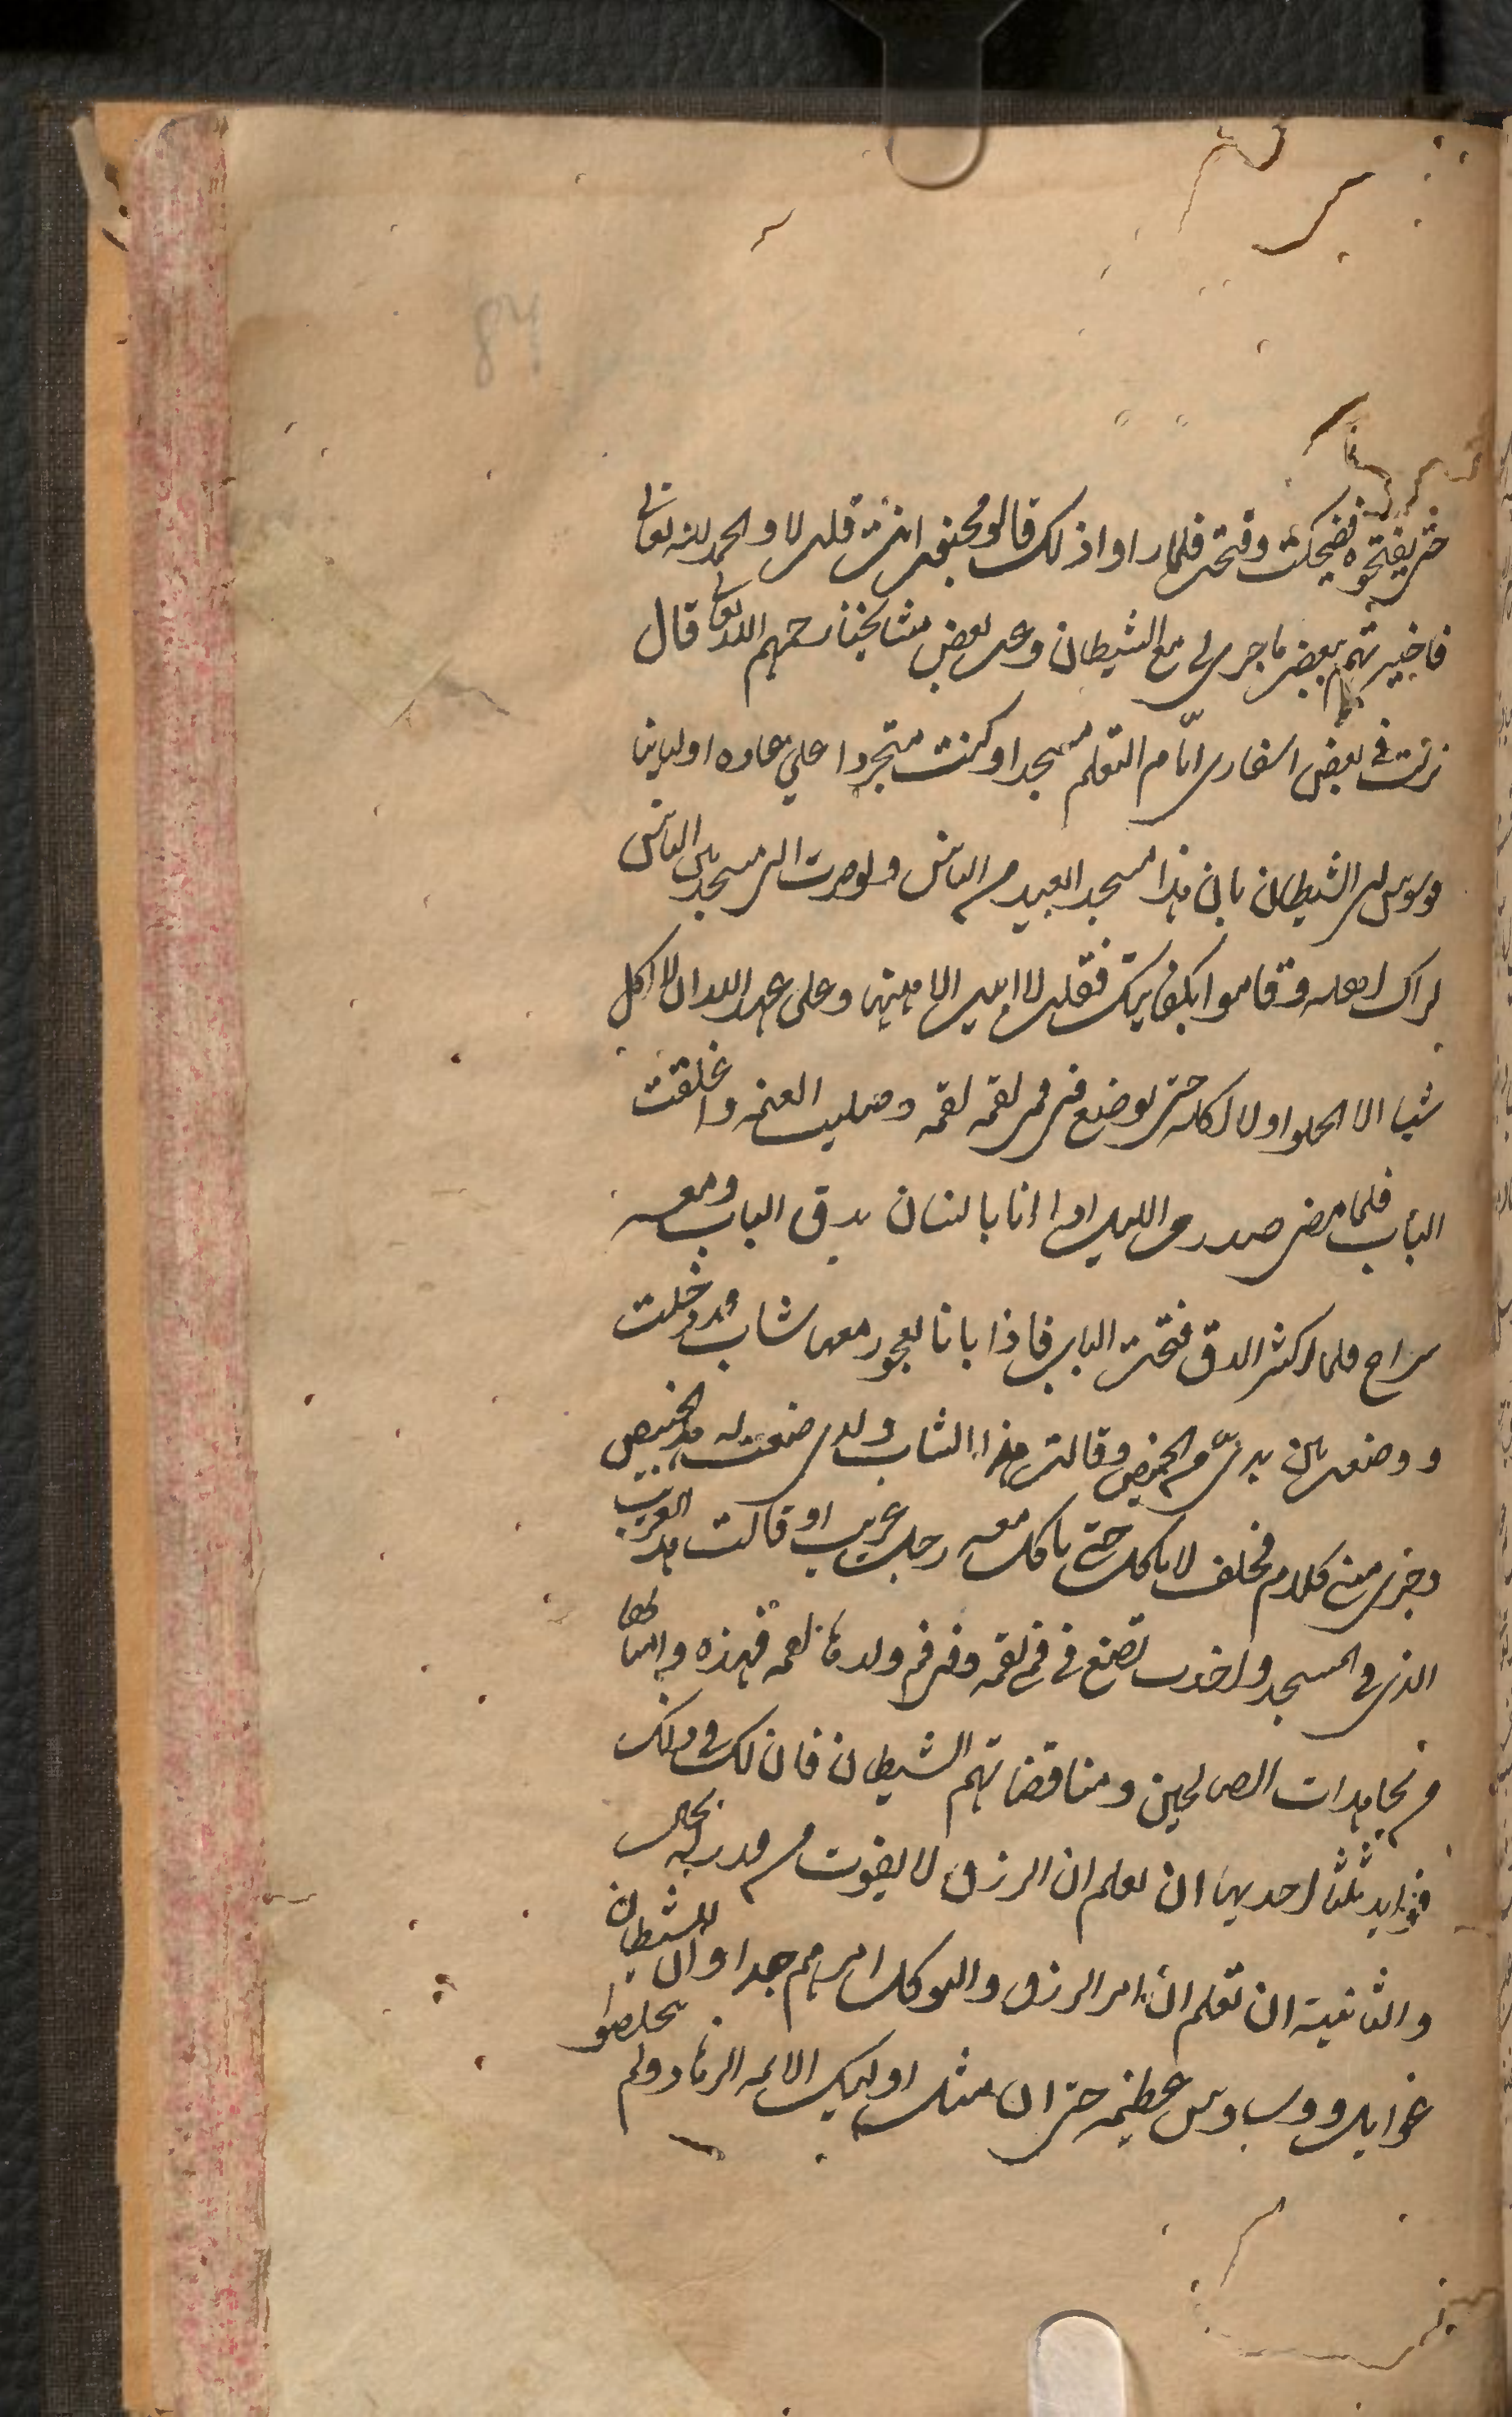 84
حتى يفتحوه فضحكت وفتحت فلما راوا ذلك قالو مجنون انت قلت لا والحمد لله تعالى
فاخبرتهم ببعض ما جرى لي مع الشيطان وعن بعض مشايخنا رحمهم الله تعالى قال
نزلت في بعض اسفارى ايّام التعلم مسجدا وكنت متجردا على عاده اوليانا
وسوس الى الشيطان بان هذا مسجد البعيد من الناس ولو صرت الى مسجد بين الناس
لراك اهله وقاموا بكفايتك فقلت لا ابيت الا هيهنا وعلى عهد الله ان لا اكل
شيا الا الحلوا ولا اكله حتى يوضع فى فمى لقمه لقمه وصليت العتمه واغلقت
الباب فلما مضى صدر من الليل اذا انا بانسان يدق الباب ومعه
سراج فلما اكثر الدق فتحت الباب فاذا بانا بعجوز معها شاب قد دخلت
ووضعت بين يدىّ من الخبيص وقالت هذا الشاب ولدى صنعت له هذ الخبيص
وجرى منى كلام فحلف لا ياكل حتى ياكل معه رجل غريب او قالت هذ الغريب
الذى في المسجد واخذت تضع في فمى لقمه وفى فم ولدها لقمه فهذه وامثالها
من مجاهدات الصالحين ومناقضاتهم الشيطان فان لك في ذلك
فوايد ثلثا احديها ان تعلم ان الرزق لا يفوت من قدر له بحال
والثانية ان تعلم ان امر الرزق والتوكل امر مهم جدا وان للشيطان
غوايل ووساوس عظيمه حتى ان مثل اوليك الايمه الزهاد ولم يتخلصوا